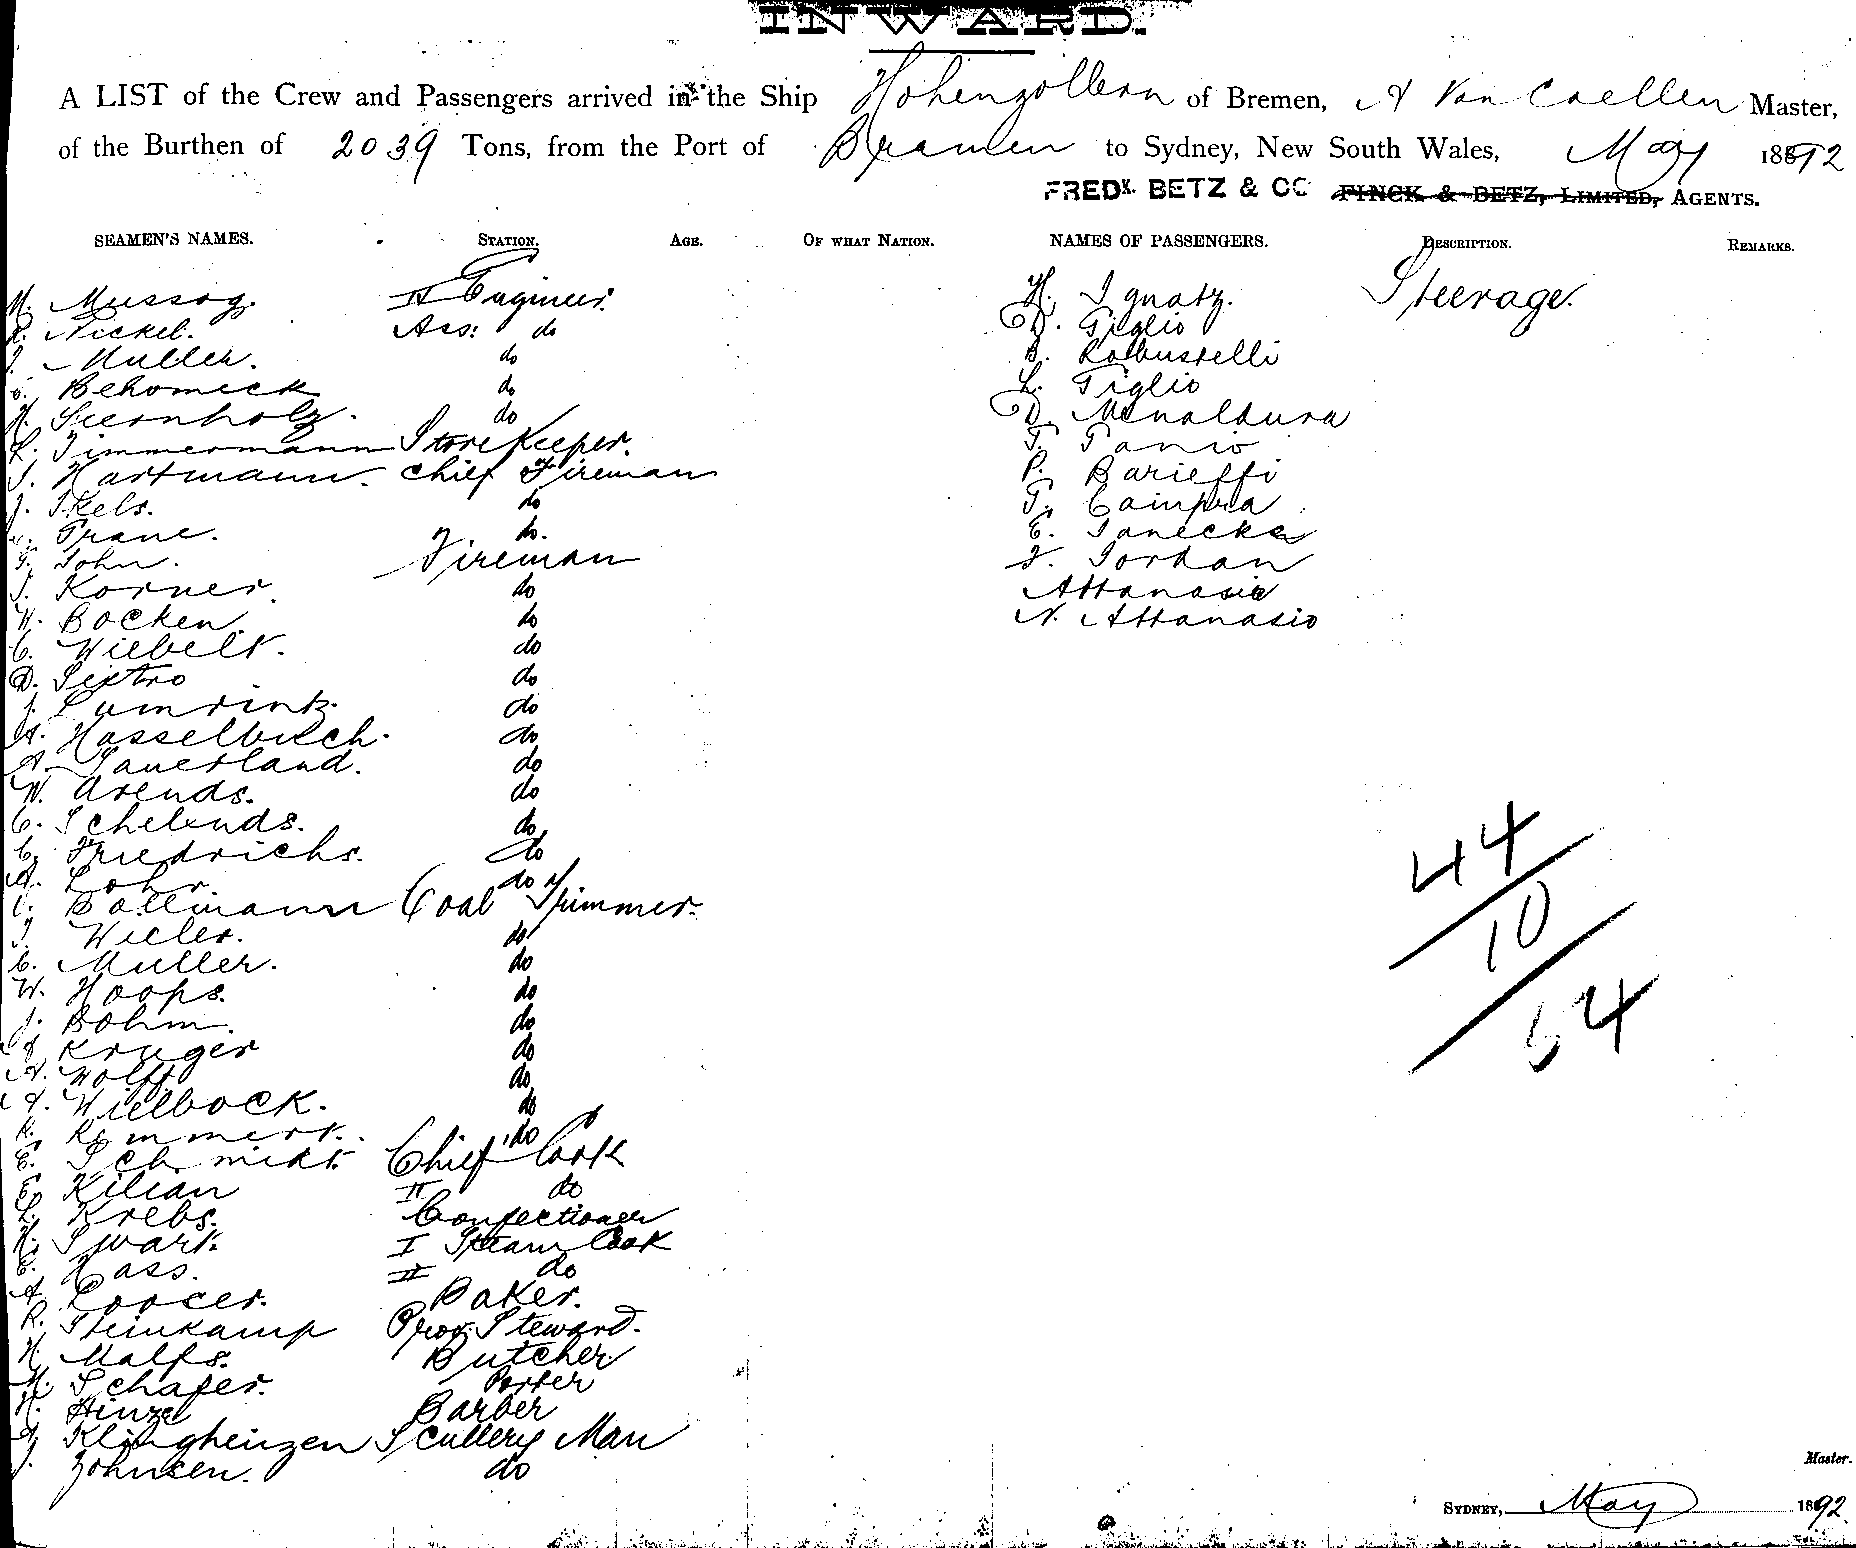 INWARD.
A LIST of the Crew and Passengers arrived in the Ship Hohenzollern of Bremen, A Van Coellen Master,
of the Burthen of 2039 Tons, from the Port of Bremen to Sydney, New South Wales, May 1892
FREDK. BETZ & CO FINCK & BETZ, LIMITED, AGENTS.
SEAMEN'S NAMES. STATION. AGE. OF WHAT NATION. NAMES OF PASSENGERS. DESCRIPTION. REMARKS.
M. Mussog. II Engineer. H. Ignatz. Steerage.
Nickel. Ass: do D. Tiglio
Muller. do B. Robustelli
Behomeck do L. Tiglio
H. Sternholz. do D. Menaldura
L. Zimmermann Store Keeper. T. Panio
J. Hartmann. Chief Fireman P. Barieffi
J. Ikels. do T. Cainpra
Franc. do. E. Janecke
John. Fireman F. Jordan
J. Korner. do Attanasio
H. Bocken. do N. Attanasio
C. Wiebelt. do
D. Sixtro do
J. Lumrink. do
A. Hasselbusch. do
A. Sauerland. do
W. Arends. do
C. Schelunds. do
C. Friedrichs. do
A. Lohr. do
C. Bollmann Coal Trimmer.
J. Wieler. do
C. Muller. do
W. Hoops. do
J. Bohm. do
Kruger do
A. Wolff do
A. Wielbock. do
R. Kemmert. do
E. Schmidt. Chief Cook
E. Kilian II do
L. Krebs. Confectioner
H. Swart. I Steam Cook
C. Hass. II do
A. Loocer. Baker.
R. Steinkamp Prov. Steward.
H. Malfs. Butcher
M. Schafer. Porter
H. Hinze Barber
A. Klinghenzen Scullery Man
J. Johnsen. do
44
10
54
Master.
SYDNEY, May 1892.